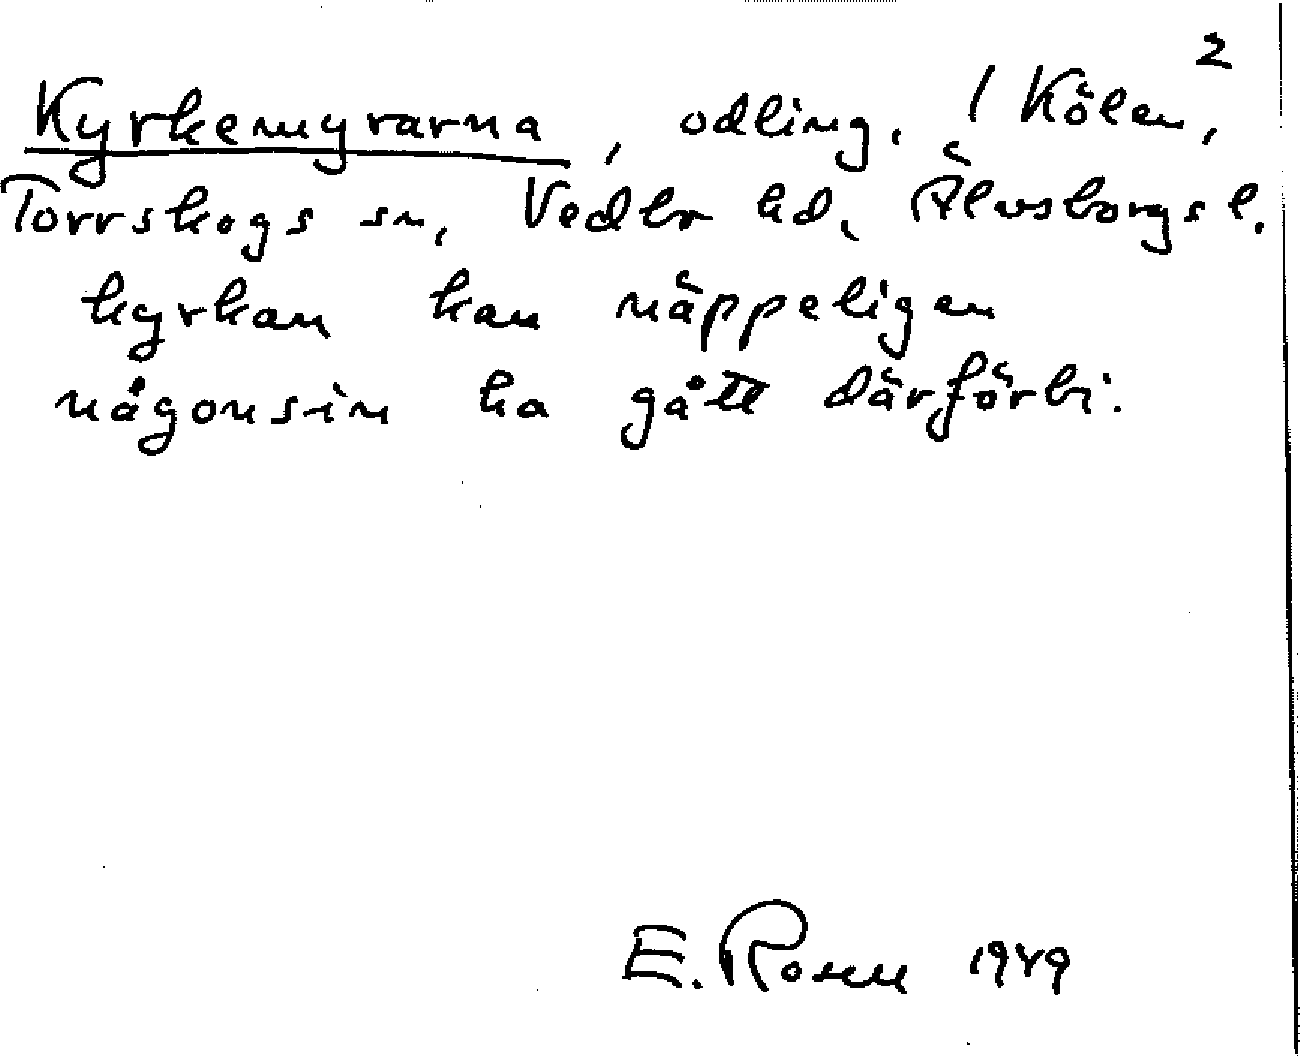 2
Kyrkemyrarna, odling. / Kölen,
Torrskogs sn, Vedbo hd, Älvsborgs l.
kyrkan kan näppeligen
någonsin ha gått därförbi.
E. Rosell 1949